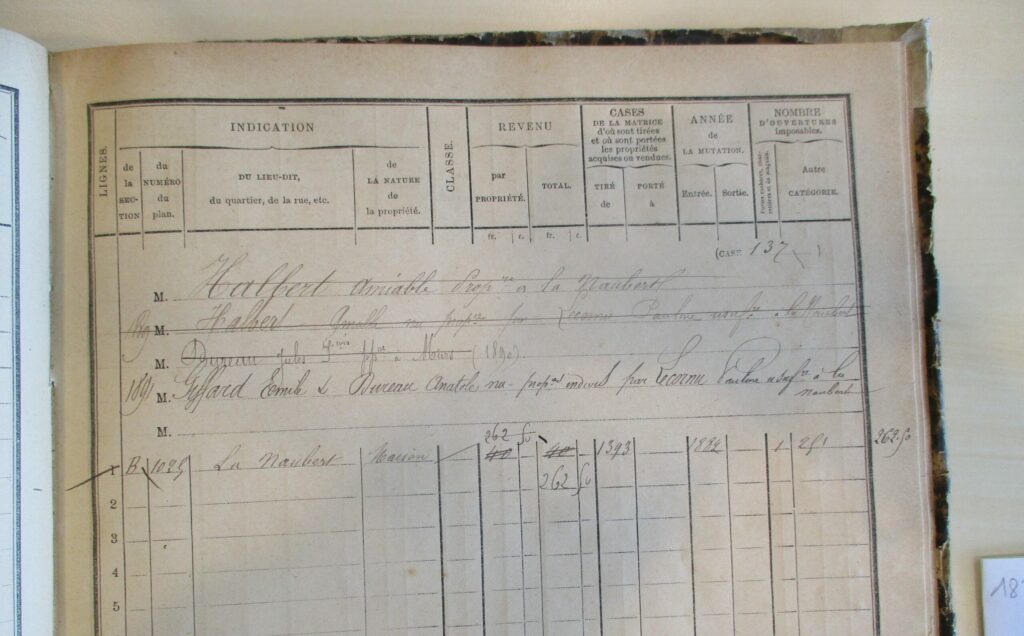 INDICATION
REVENU
CASES
DE LA MATRICE
d'où sont tirées
et où sont portées
les propriétés
acquises ou vendues.
ANNÉE
de
LA MUTATION.
NOMBRE
D'OUVERTURES
imposables.
LIGNES.
de
la
SEC-
TION
du
NUMÉRO
du
plan.
DU LIEU-DIT,
du quartier, de la rue, etc.
de
LA NATURE
de la propriété.
CLASSE.
par
PROPRIÉTÉ.
TOTAL.
TIRÉ
de
PORTÉ
à
Entrée.
Sortie.
Autre
CATÉGORIE.
fr. c. fr. c.
(CASE 137 )
M. Halbert Amiable Propre à la Naubert
M. Halbert nu propre par Lecornu Pauline usufre à la Naubert
M. Bureau Jules à Murs (1890).
1891 M. Giffard Emile & Bureau Anatole nu-propres indivis par Lecornu Pauline usufre à la
naubert
M.
262 50
1 B 1025 La Naubert Maison 40 40 1393 1882 1 251 262.50
262 50
2
3
4
5
18